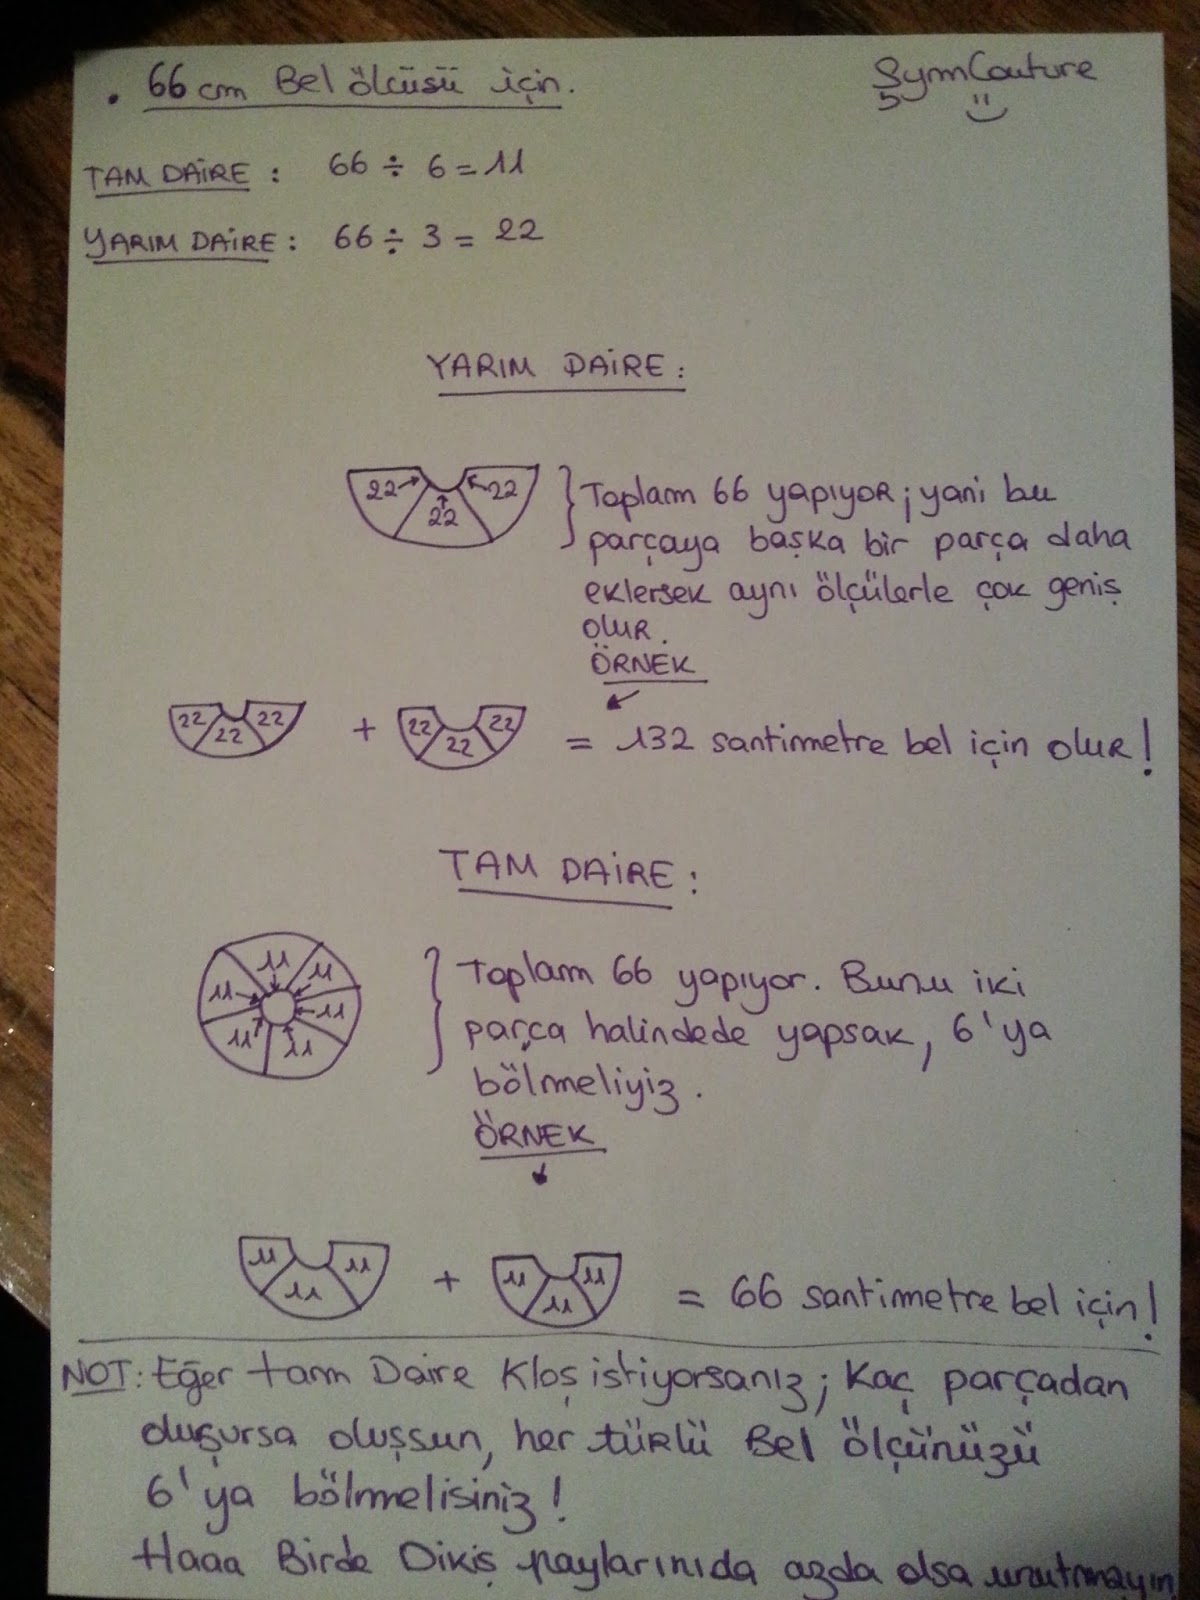 . 66 cm Bel ölçüsü için.
ŞymCouture
TAM DAİRE : 66 ÷ 6 = 11
YARIM DAİRE : 66 ÷ 3 = 22
YARIM DAİRE :
22 22 22
} Toplam 66 yapıyor ; yani bu
parçaya başka bir parça daha
eklersek aynı ölçülerle çok geniş
olur.
ÖRNEK
22 22 22 + 22 22 22 = 132 santimetre bel için olur !
TAM DAİRE :
11 11 11 11 11 11
} Toplam 66 yapıyor. Bunu iki
parça halindede yapsak, 6'ya
bölmeliyiz.
ÖRNEK
11 11 11 + 11 11 11 = 66 santimetre bel için !
NOT : Eğer tam Daire Kloş istiyorsanız ; Kaç parçadan
oluşursa oluşsun, her türlü Bel ölçünüzü
6'ya bölmelisiniz !
Haaa Birde Dikiş paylarınıda azda olsa unutmayın